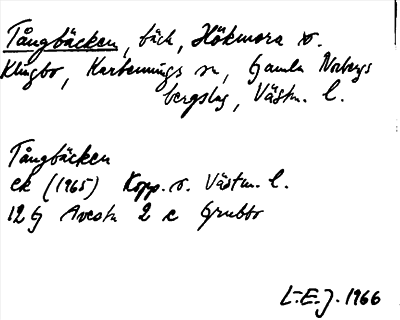 Tångbäcken, bäck, Hökmora o.
Klingbo, Karbennings sn, Gamla Norbergs
bergslag, Västm. l.
Tångbäcken
ek (1965) Kopp. o. Västm. l.
12 G Avesta 2 c Grubbo
L-E. J. 1966